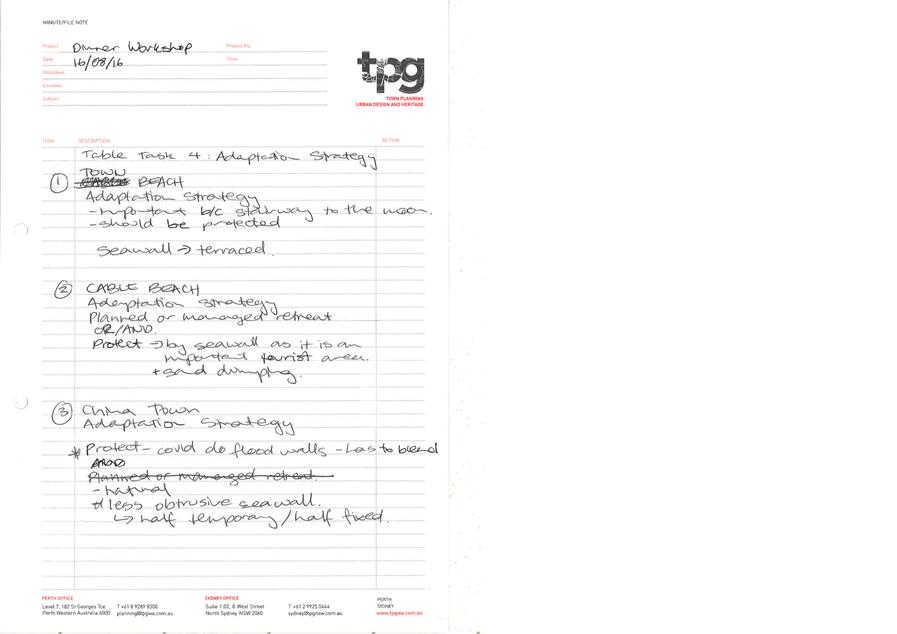 MINUTE/FILE NOTE
Project Dinner Workshop Project No.
Date 16/08/16 Time
Attendees
Location
Subject
tpg
TOWN PLANNING
URBAN DESIGN AND HERITAGE
ITEM DESCRIPTION ACTION
Table Task 4 : Adaptation Strategy
TOWN
1 BEACH
Adaptation Strategy
- important b/c stairway to the moon.
- should be protected
Seawall → terraced.
2 CABLE BEACH
Adaptation Strategy
Planned or managed retreat
OR/AND.
Protect → by seawall as it is an
important tourist area.
+ sand dumping.
3 China Town
Adaptation Strategy
* Protect - could do flood walls - has to blend
AND
Planned or managed retreat.
- natural
less obtrusive seawall.
↳ half temporary / half fixed.
PERTH OFFICE
Level 7, 182 St Georges Tce T +61 8 9289 8300
Perth Western Australia 6000 planning@tpgwa.com.au
SYDNEY OFFICE
Suite 1.02, 8 West Street T +61 2 9925 0444
North Sydney NSW 2060 sydney@tpgnsw.com.au
PERTH
SYDNEY
www.tpgwa.com.au